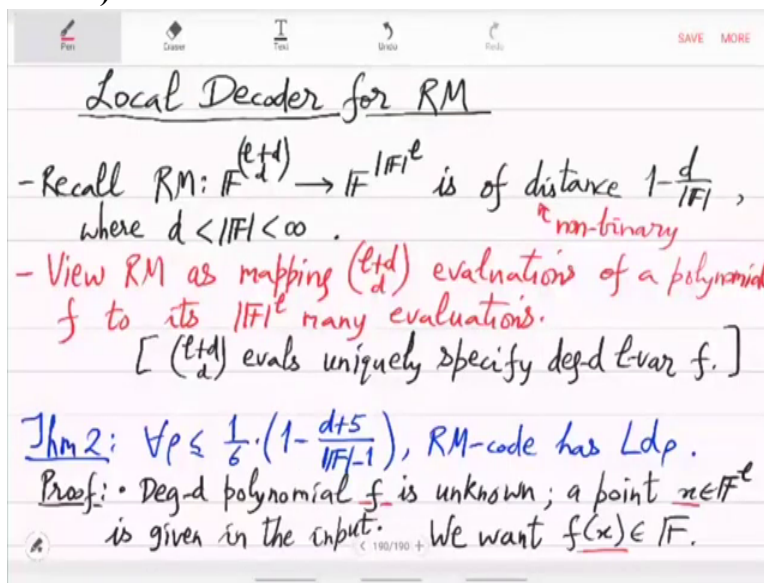 Pen Eraser Text Undo Redo SAVE MORE
Local Decoder for RM
- Recall RM: 𝔽^(ℓ+d choose d) → 𝔽^|𝔽|^ℓ is of distance 1 - d/|𝔽| ,
where d < |𝔽| < ∞ . ↑ non-binary
- View RM as mapping (ℓ+d choose d) evaluations of a polynomial
f to its |𝔽|^ℓ many evaluations.
[ (ℓ+d choose d) evals uniquely specify deg-d ℓ-var f. ]
Thm 2: ∀ρ ≤ 1/6 · (1 - (d+5)/(|𝔽|-1)), RM-code has Ldρ .
Proof: • Deg-d polynomial f is unknown; a point x ∈ 𝔽^ℓ
is given in the input. We want f(x) ∈ 𝔽.
< 190/190 +